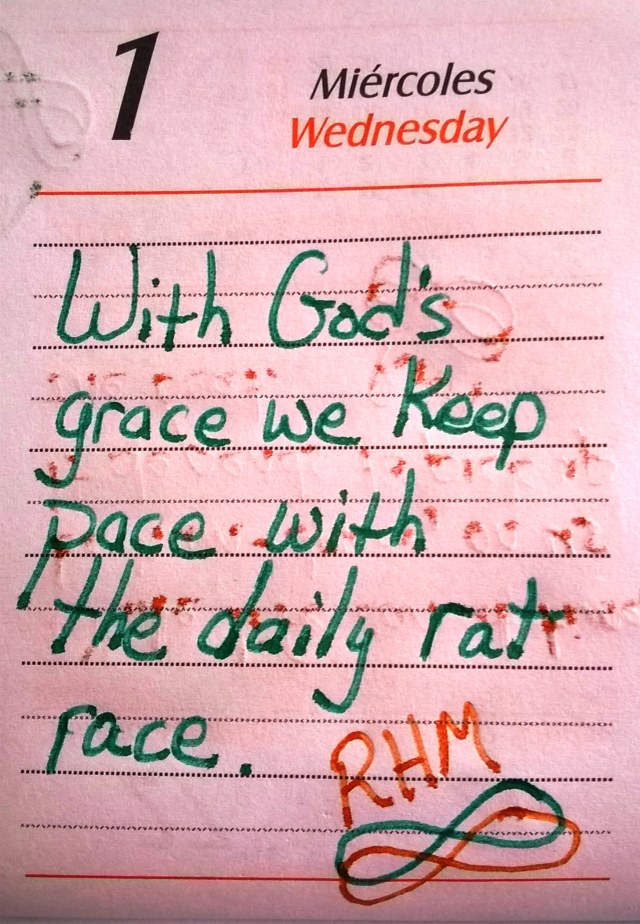 1
Miércoles
Wednesday
With God's
grace we Keep
pace with
the daily rat
race.
RHM